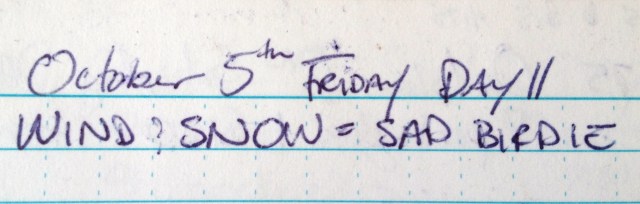 October 5th FRIDAY DAY 11
WIND & SNOW = SAD BIRDIE